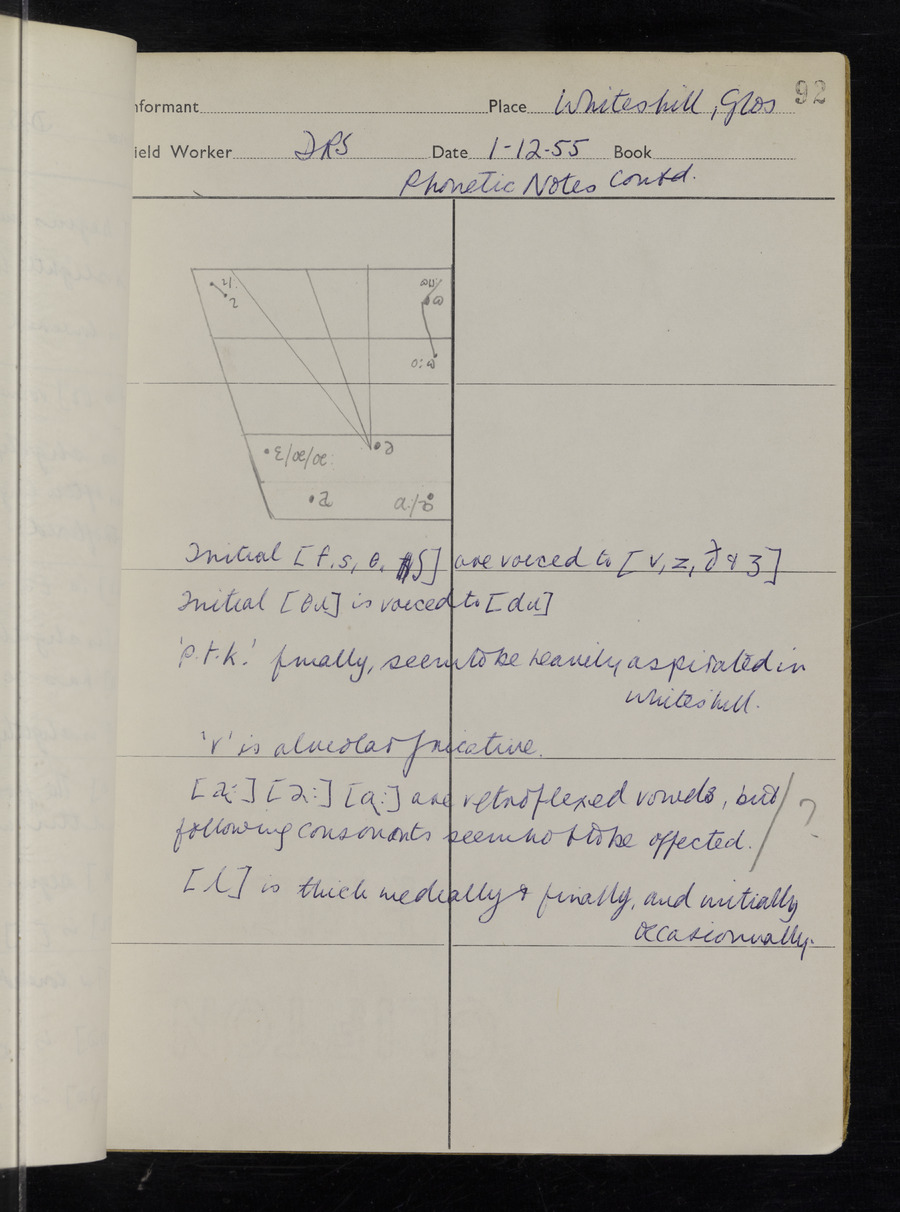 nformant Place Whiteshill, Glos 92
ield Worker DRS Date 1-12-55 Book
Phonetic Notes Contd.
ɷ
o:ɷ
ε/æ/æ: ə
a ɑ:/ɒ
Initial [f, s, θ, ʃ] are voiced to [v, z, ð & ʒ]
Initial [θɹ] is voiced to [dɹ]
'p.t.k.' finally, seem to be heavily aspirated in
Whiteshill.
'r' is alveolar fricative.
are retroflexed vowels, but / ?
following consonants seem not to be affected.
[l] is thick medially & finally, and initially
occasionnally.